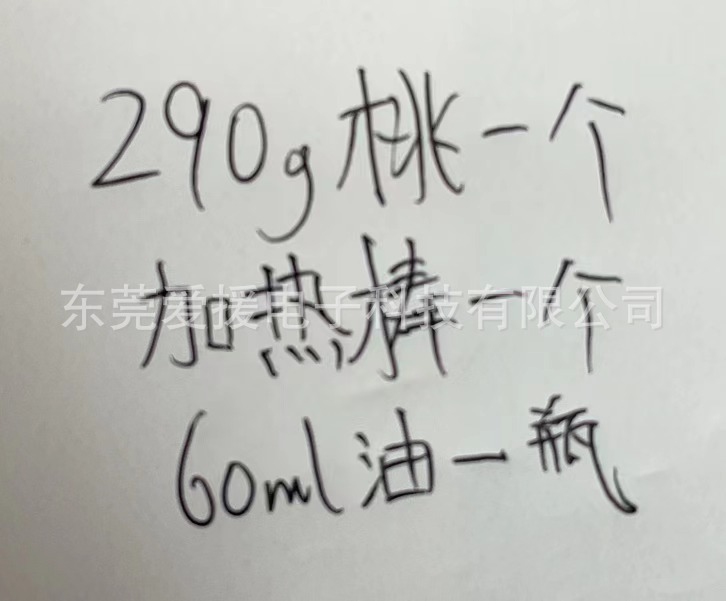 290g桃一个
加热棒一个
东莞爱援电子科技有限公司
60ml油一瓶